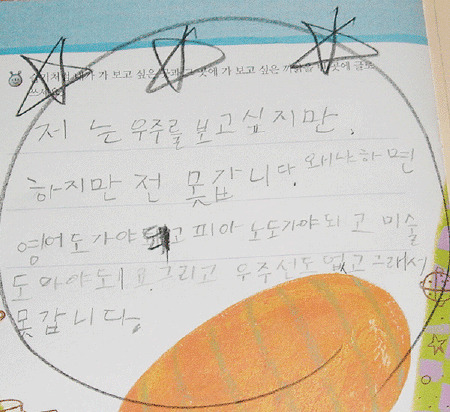 가 보고 싶은 곳과 그 곳에 가 보고 싶은 까닭을 글로
저 는 우주를 보고싶지만,
하지만 전 못갑니다. 왜냐하면
영어도 가야되고 피아노도가야되고 미술
도 아야되요. 그리고 우주선도 없고 그래서
못갑니다.